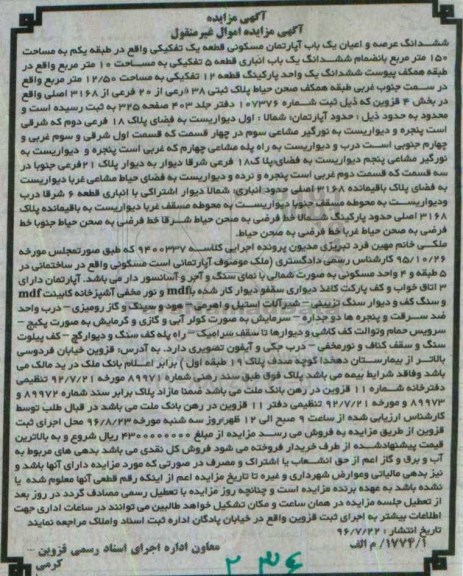 آگهی مزایده
آگهی مزایده اموال غیرمنقول
ششدانگ عرصه و اعیان یک باب آپارتمان مسکونی قطعه یک تفکیکی واقع در طبقه یکم به مساحت
۱۵۰ متر مربع بانضمام ششدانگ یک باب انباری قطعه ۵ تفکیکی به مساحت ۱۰ متر مربع واقع در
طبقه همکف پیوست ششدانگ یک واحد پارکینگ قطعه ۱۲ تفکیکی به مساحت ۱۲/۵۰ متر مربع واقع
در سمت جنوب غربی طبقه همکف صحن حیاط پلاک ثبتی ۳۸ فرعی از ۲۰ فرعی از ۳۱۶۸ اصلی واقع
در بخش ۴ قزوین که ذیل ثبت شماره ۱۰۷۳۷۶ دفتر جلد ۴۰۳ صفحه ۳۲۵ به ثبت رسیده است و
محدود به حدود ذیل: حدود آپارتمان: شمالا: اول دیواریست به فضای پلاک ۱۸ فرعی دوم که شرقی
است پنجره و دیواریست به نورگیر مشاعی سوم در چهار قسمت که قسمت اول شرقی و سوم غربی و
چهارم جنوبی است درب و دیواریست به راه پله مشاعی چهارم که غربی است پنجره و دیواریست به
نورگیر مشاعی پنجم دیواریست به فضای پلاک ۱۸ فرعی شرقا دیوار به دیوار پلاک ۲۱ فرعی جنوبا در
سه قسمت که قسمت دوم غربی است پنجره و نرده و دیواریست به فضای حیاط مشاعی غربا دیواریست
به فضای پلاک باقیمانده ۳۱۶۸ اصلی حدود انباری: شمالا دیوار اشتراکی با انباری قطعه ۶ شرقا درب
ودیواریست به محوطه مسقف جنوبا دیواریست به محوطه مسقف غربا دیواریست به باقیمانده پلاک
۳۱۶۸ اصلی حدود پارکینگ شمالا خط فرضی به صحن حیاط شرقا خط فرضی به صحن حیاط جنوبا خط
فرضی به صحن حیاط غربا خط فرضی به صحن حیاط.
ملکی خانم مهین فرد تبریزی مدیون پرونده اجرایی کلاسه ۹۴۰۰۳۳۷ که طبق صورتمجلس مورخه
۹۵/۱۰/۲۶ کارشناس رسمی دادگستری (ملک موصوف آپارتمانی است مسکونی واقع در ساختمانی در
۵ طبقه و ۴ واحد مسکونی به صورت شمالی با نمای سنگ و آجر و آسانسور دار می باشد. آپارتمان دارای
۳ اتاق خواب و کف پارکت کاغذ دیواری سقفو دیوار کار شده باmdf و نور مخفی آشپزخانه کابینت mdf
و سنگ کف و دیوار سنگ تزیینی – شیرآلات استیل و اهرمی – هود و سینک و گاز رومیزی – درب واحد
ضد سرقت و پنجره ها دو جداره – سرمایش به صورت کولر آبی و گازی و گرمایش به صورت پکیج –
سرویس حمام وتوالت کف کاشی و دیوارها تا سقف سرامیک – راه پله کف سنگ و دیوارگچ – کف پیلوت
سنگ و سقف کناف و نورمخفی – درب جکی و آیفون تصویری دارد. به آدرس: قزوین خیابان فردوسی
بالاتر از بیمارستان دهخدا کوچه صدف پلاک ۱۹ طبقه اول) برابر اعلام بانک ملت در ید مالک می
باشد وفاقد شرایط بیمه می باشد پلاک فوق طبق سند رهنی شماره ۸۹۹۷۱ مورخه ۹۲/۷/۲۱ تنظیمی
دفترخانه شماره ۱۱ قزوین در رهن بانک ملت می باشد ضمنا مازاد پلاک برابر سند شماره ۸۹۹۷۲ و
۸۹۹۷۳ و مورخه ۹۲/۷/۲۱ تنظیمی دفتر ۱۱ قزوین در رهن بانک ملت می باشد در قبال طلب توسط
کارشناس ارزیابی شده از ساعت ۹ صبح الی ۱۲ ظهرروز سه شنبه مورخه ۹۶/۸/۲۳ محل اجرای ثبت
قزوین از طریق مزایده به فروش می رسد مزایده از مبلغ ۴۳۰۰۰۰۰۰۰۰ ریال شروع و به بالاترین
قیمت پیشنهادشده از طرف خریدار فروخته می شود فروش کل نقدی می باشد بدهی های مربوط به
آب و برق و گاز اعم از حق انشعاب یا اشتراک و مصرف در صورتی که مورد مزایده دارای آنها باشد و
نیز بدهی مالیاتی وعوارض شهرداری و غیره تا تاریخ مزایده اعم از اینکه رقم قطعی آنها معلوم شده یا
نشده باشد به عهده برنده مزایده است و چنانچه روز مزایده با تعطیل رسمی مصادف گردد در روز بعد
از تعطیل جلسه مزایده در همان ساعت و مکان تشکیل خواهد طالبین می توانند در ساعات اداری جهت
اطلاعات بیشتر به اجرای ثبت قزوین واقع در خیابان پادگان اداره ثبت اسناد واملاک مراجعه نمایند
تاریخ انتشار: ۹۶/۷/۲۲
۱۷۷۴/۱/ م الف
معاون اداره اجرای اسناد رسمی قزوین –
کرمی
۲۳۶